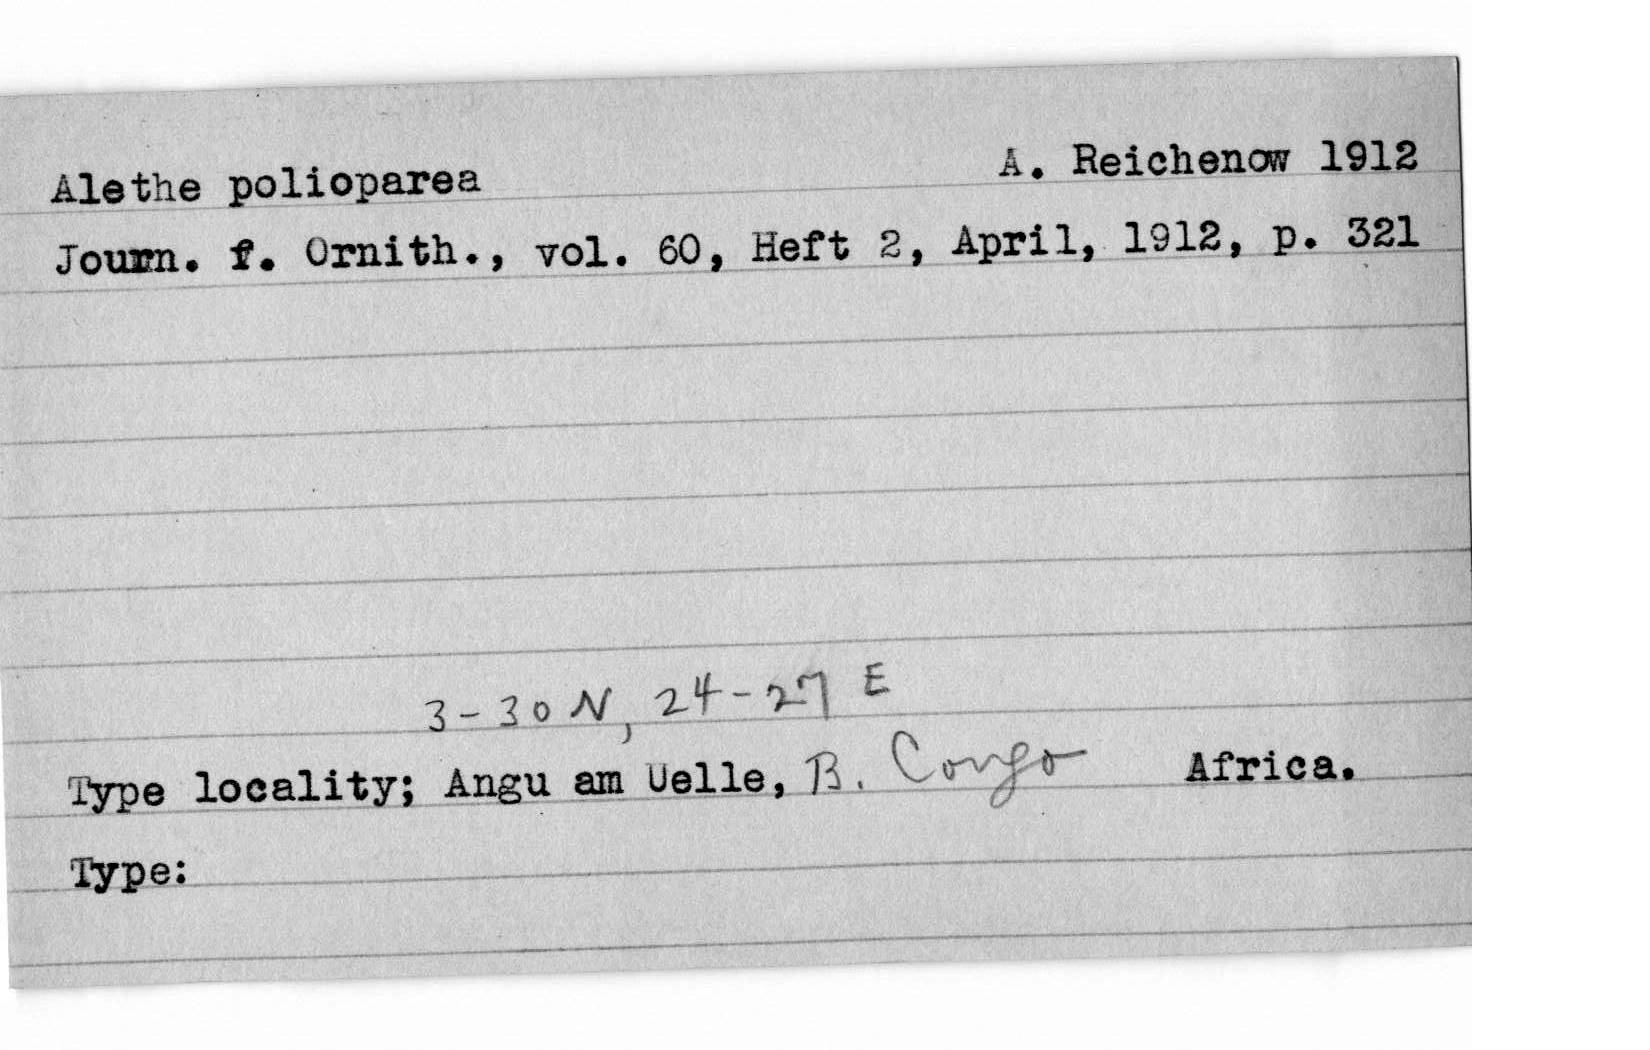 Alethe polioparea A. Reichenow 1912
Journ. f. Ornith., vol. 60, Heft 2, April, 1912, p. 321
3-30 N, 24-27 E
Type locality; Angu am Uelle, B. Congo Africa.
Type: